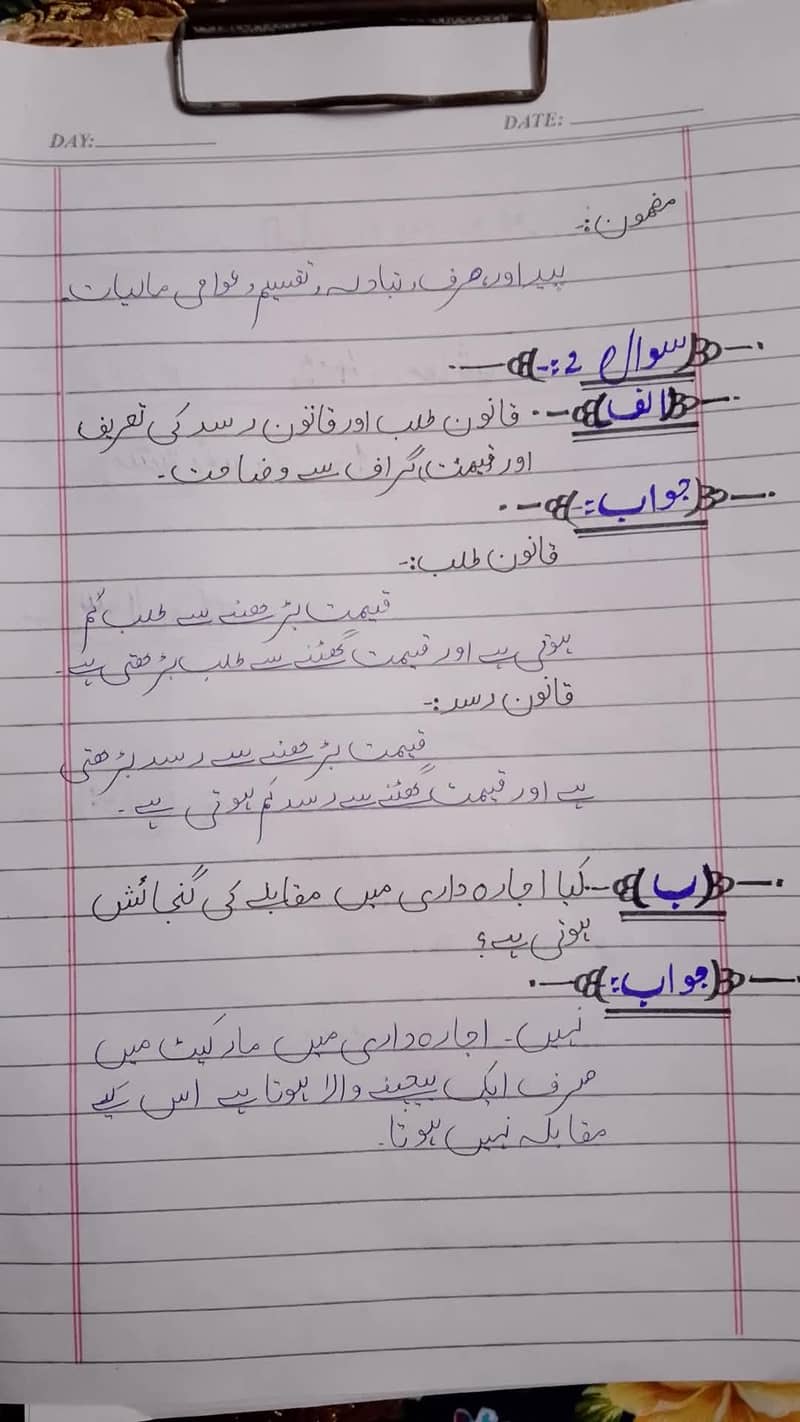 DAY:
DATE:
مضمون:-
پیداور، صرف، تبادلہ، تقسیم، عوامی مالیات۔
سوال 2:-
(الف) قانون طلب اور قانون رسد کی تعریف
اور قیمت، گراف سے وضاحت۔
جواب:-
قانون طلب:-
قیمت بڑھنے سے طلب کم
ہوتی ہے اور قیمت گھٹنے سے طلب بڑھتی ہے۔
قانون رسد:-
قیمت بڑھنے سے رسد بڑھتی
ہے اور قیمت گھٹنے سے رسد کم ہوتی ہے۔
(ب) کیا اجارہ داری میں مقابلے کی گنجائش
ہوتی ہے؟
جواب:-
نہیں۔ اجارہ داری میں مارکیٹ میں
صرف ایک بیچنے والا ہوتا ہے اس لیے
مقابلہ نہیں ہوتا۔